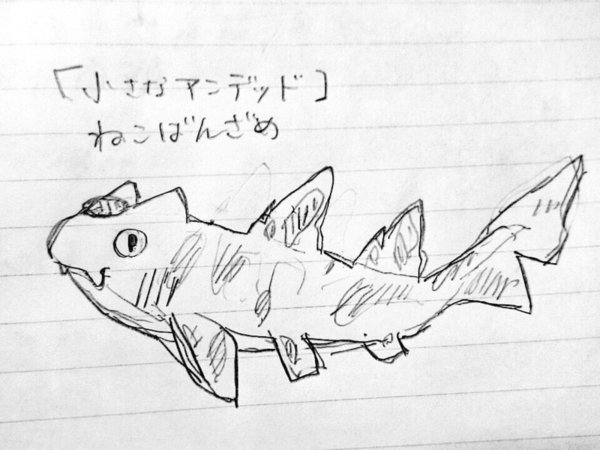 [小さなアンデッド]
ねこばんざめ